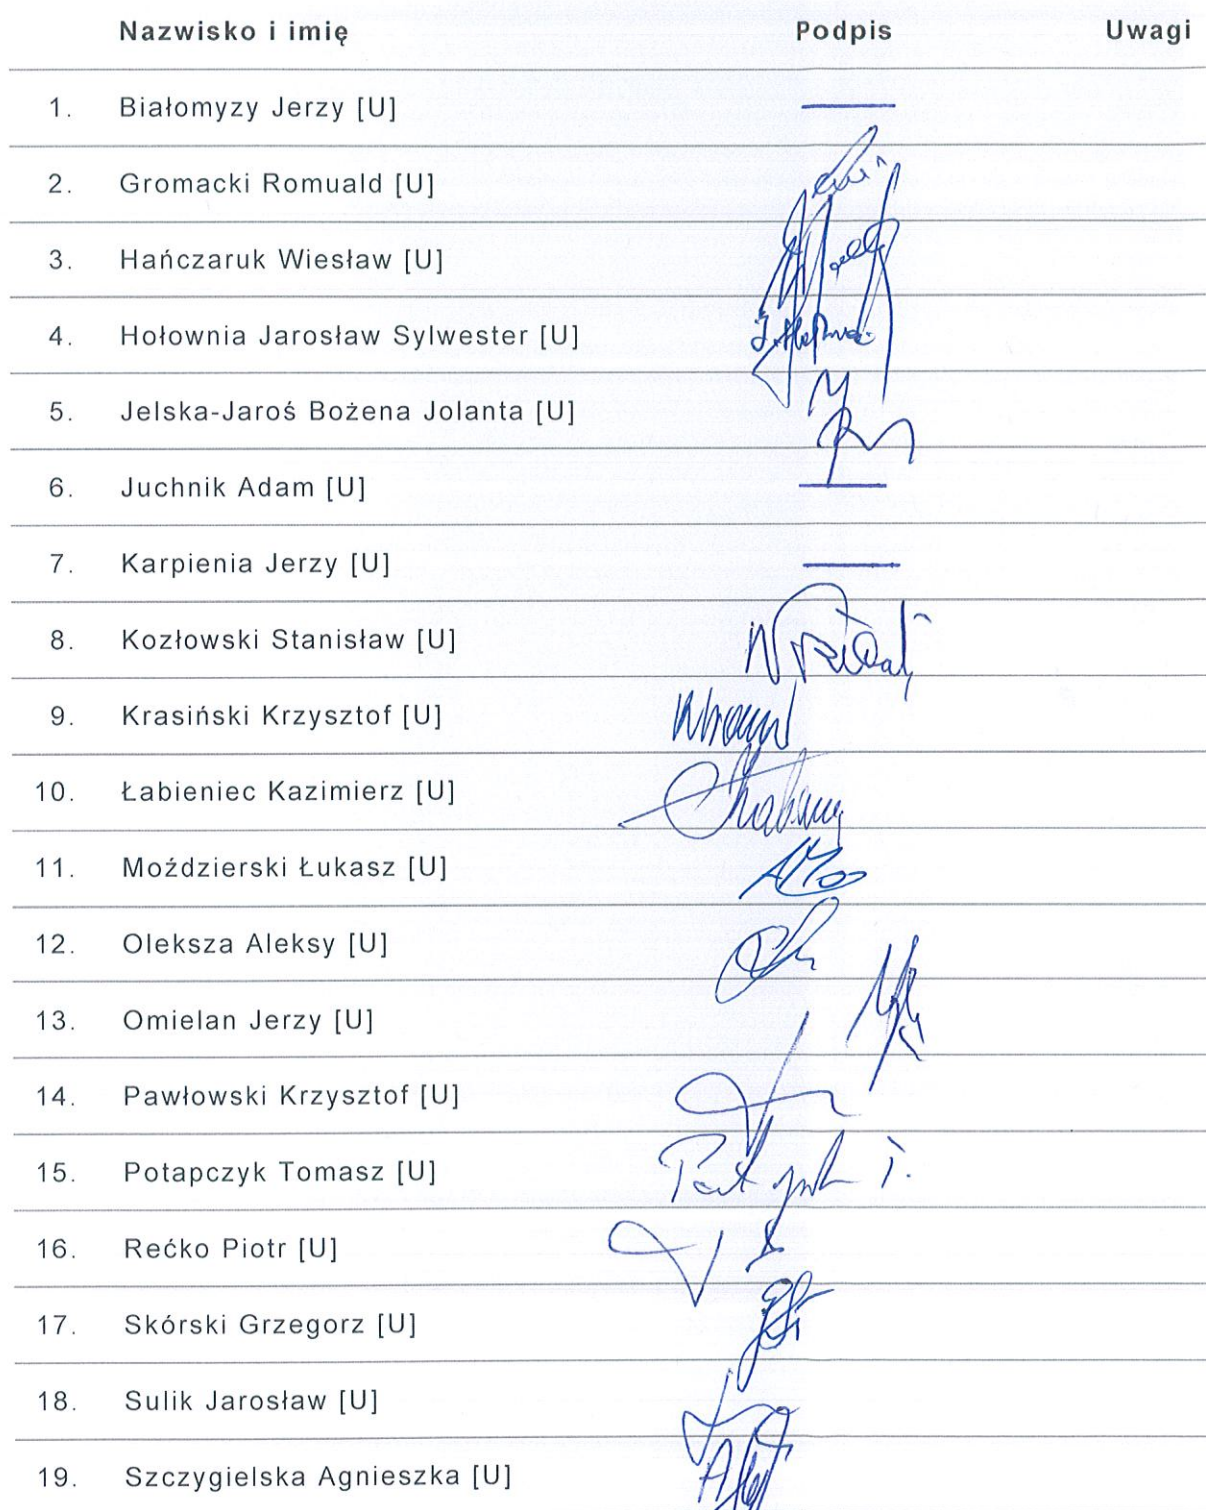 Nazwisko i imię Podpis Uwagi
1. Białomyzy Jerzy [U]
2. Gromacki Romuald [U]
3. Hańczaruk Wiesław [U]
4. Hołownia Jarosław Sylwester [U]
5. Jelska-Jaroś Bożena Jolanta [U]
6. Juchnik Adam [U]
7. Karpienia Jerzy [U]
8. Kozłowski Stanisław [U]
9. Krasiński Krzysztof [U]
10. Łabieniec Kazimierz [U]
11. Moździerski Łukasz [U]
12. Oleksza Aleksy [U]
13. Omielan Jerzy [U]
14. Pawłowski Krzysztof [U]
15. Potapczyk Tomasz [U]
16. Rećko Piotr [U]
17. Skórski Grzegorz [U]
18. Sulik Jarosław [U]
19. Szczygielska Agnieszka [U]